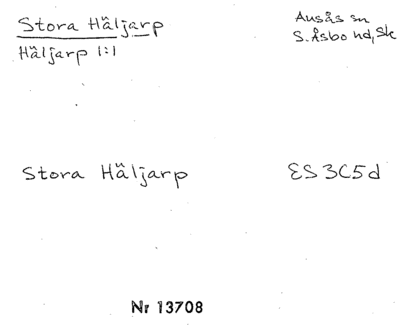 Stora Häljarp
Häljarp 1:1
Ausås sn
S. Åsbo hd, Sk
Stora Häljarp
ES 3C5d
Nr 13708